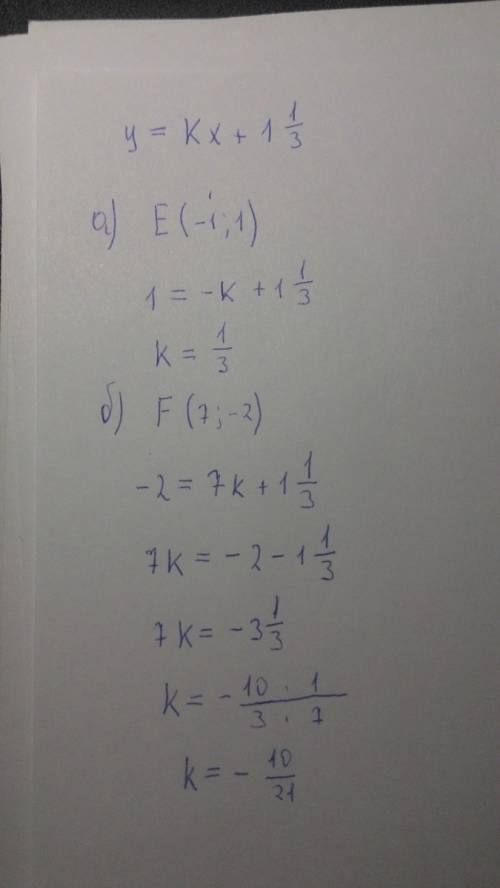 y = Kx + 1 1/3
а) E (-1; 1)
1 = -K + 1 1/3
K = 1/3
б) F (7; -2)
-2 = 7K + 1 1/3
7K = -2 - 1 1/3
7K = -3 1/3
K = - 10 · 1 / 3 · 7
K = - 10/21